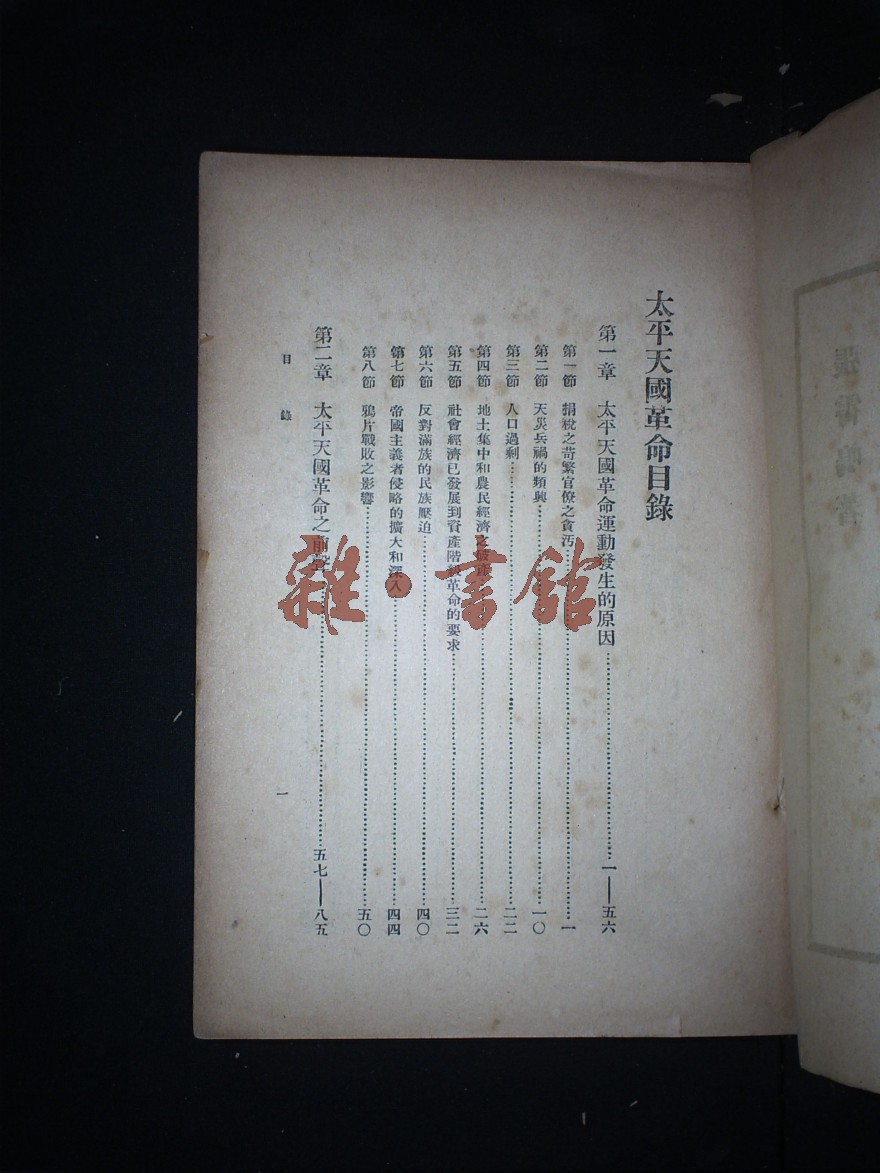 太平天國革命目錄
第一章　太平天國革命運動發生的原因……一——五六
第一節　捐稅之苛繁官僚之貪汚……一
第二節　天災兵禍的頻興……一〇
第三節　人口過剩……二二
第四節　地土集中和農民經濟之破產……二六
第五節　社會經濟已發展到資產階級革命的要求……三二
第六節　反對滿族的民族壓迫……四〇
第七節　帝國主義者侵略的擴大和深入……四四
第八節　鴉片戰敗之影響……五〇
第二章　太平天國革命之前聲……五七——八五
目錄
一
雜·書館